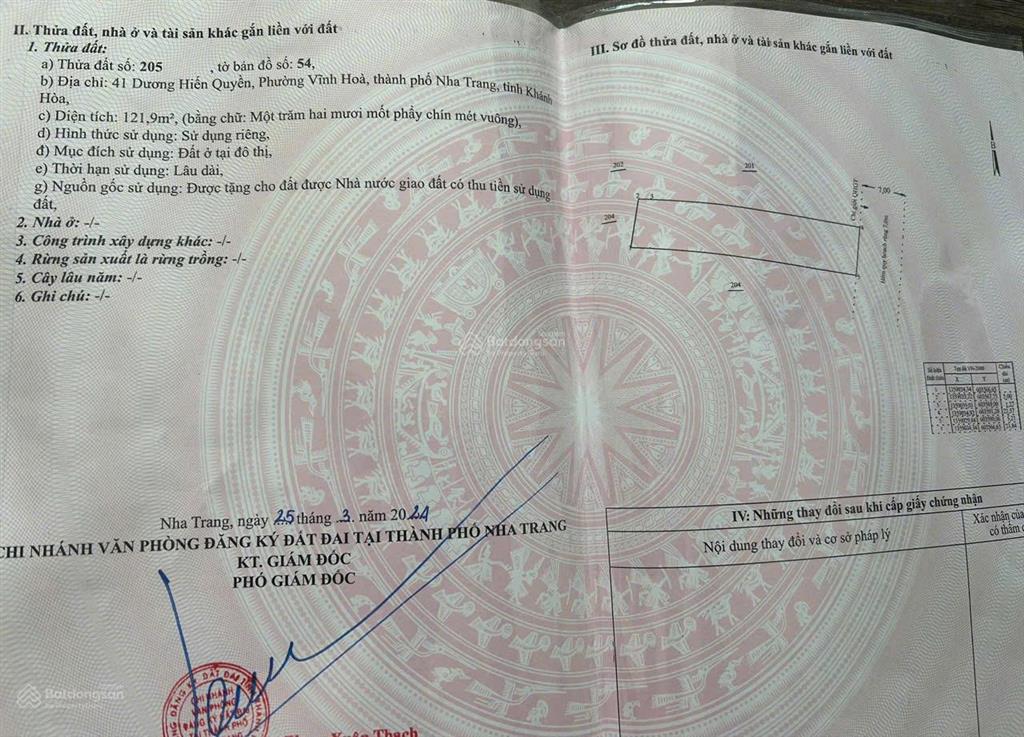 II. Thửa đất, nhà ở và tài sản khác gắn liền với đất
1. Thửa đất:
a) Thửa đất số: 205 , tờ bản đồ số: 54,
b) Địa chỉ: 41 Dương Hiến Quyền, Phường Vĩnh Hoà, thành phố Nha Trang, tỉnh Khánh
Hòa,
c) Diện tích: 121,9m², (bằng chữ: Một trăm hai mươi mốt phẩy chín mét vuông),
d) Hình thức sử dụng: Sử dụng riêng,
đ) Mục đích sử dụng: Đất ở tại đô thị,
e) Thời hạn sử dụng: Lâu dài,
g) Nguồn gốc sử dụng: Được tặng cho đất được Nhà nước giao đất có thu tiền sử dụng
đất,
2. Nhà ở: -/-
3. Công trình xây dựng khác: -/-
4. Rừng sản xuất là rừng trồng: -/-
5. Cây lâu năm: -/-
6. Ghi chú: -/-
Nha Trang, ngày 25 tháng 3 năm 2024
CHI NHÁNH VĂN PHÒNG ĐĂNG KÝ ĐẤT ĐAI TẠI THÀNH PHỐ NHA TRANG
KT. GIÁM ĐỐC
PHÓ GIÁM ĐỐC
CHI NHÁNH
VĂN PHÒNG
ĐĂNG KÝ ĐẤT ĐAI
Xuân Thạch
III. Sơ đồ thửa đất, nhà ở và tài sản khác gắn liền với đất
B
202
201
204
204
2
3
7,00
Chỉ giới QHGT
Số hiệu
đỉnh thửa
Tọa độ VN-2000
X
Y
Chiều
dài
IV: Những thay đổi sau khi cấp giấy chứng nhận
Nội dung thay đổi và cơ sở pháp lý
Xác nhận của
có thẩm
Batdongsan
Batdongsan